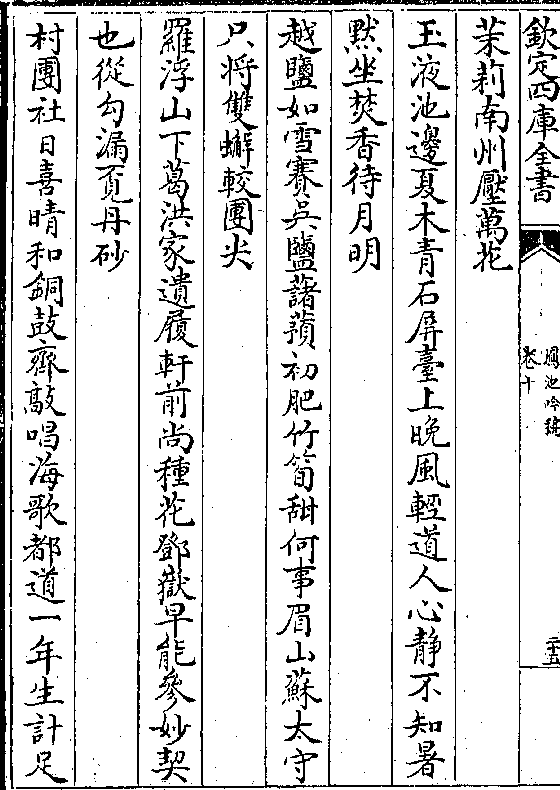 欽定四庫全書
鳳池吟稿
卷十
二十五
茉莉南州壓萬花
玉液池邊夏木青石屏臺上晚風輕道人心静不知暑
黙坐焚香待月明
越鹽如雪賽吳鹽藷蕷初肥竹筍甜何事眉山蘇太守
只将雙螯較團尖
羅浮山下葛洪家遺履軒前尚種花鄧嶽早能參妙契
也從勾漏覓丹砂
村團社日喜晴和銅鼓齊敲唱海歌都道一年生計足